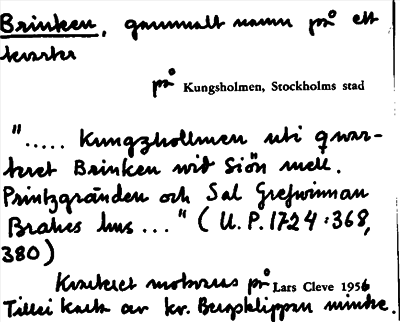 Brinken, gammalt namn på ett
kvarter
på Kungsholmen, Stockholms stad
"..... Kungzhollmen uti qwar-
teret Brinken wid Siön mell.
Printzgränden och Sal Grefwinnan
Brahes hus ..." (U.P. 1724:368,
380)
Kvarteret motsvaras på Lars Cleve 1956
Tillei karta av kv. Bergklippan mindre.